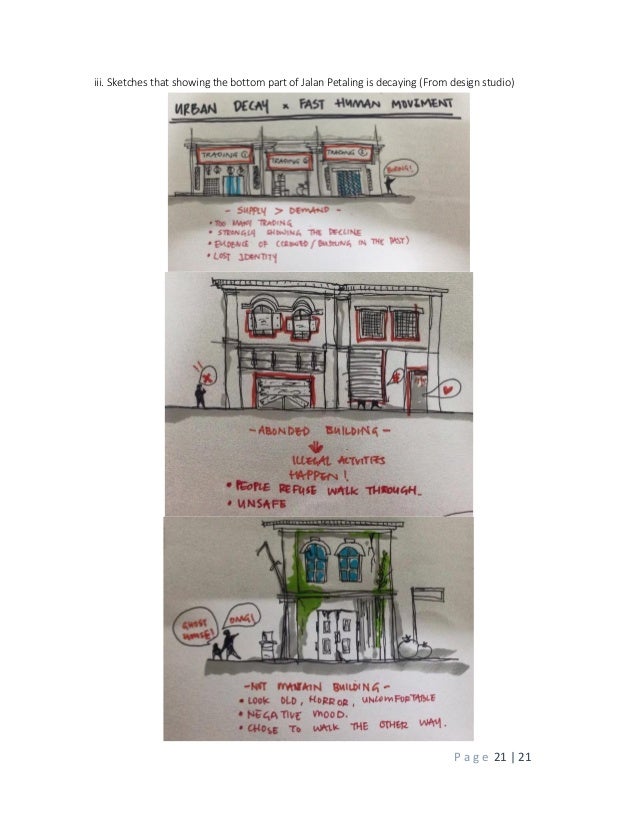 iii. Sketches that showing the bottom part of Jalan Petaling is decaying (From design studio)
URBAN DECAY x FAST HUMAN MOVEMENT
TRADING ① TRADING TRADING ②
BORING!
- SUPPLY > DEMAND -
• TOO MANY TRADING
• STRONGLY SHOWING THE DECLINE
• EVIDENCE OF (CROWDED / BUSTLING IN THE PAST)
• LOST IDENTITY
- ABONDED BUILDING -
ILLEGAL ACTVITIES
HAPPEN!
• PEOPLE REFUSE WALK THROUGH.
• UNSAFE
GHOST
HOUSE!
OMG!
- NOT MAINTAIN BUILDING -
• LOOK OLD, HORROR, UNCOMFORTABLE
• NEGATIVE MOOD.
• CHOSE TO WALK THE OTHER WAY.
Page 21 | 21